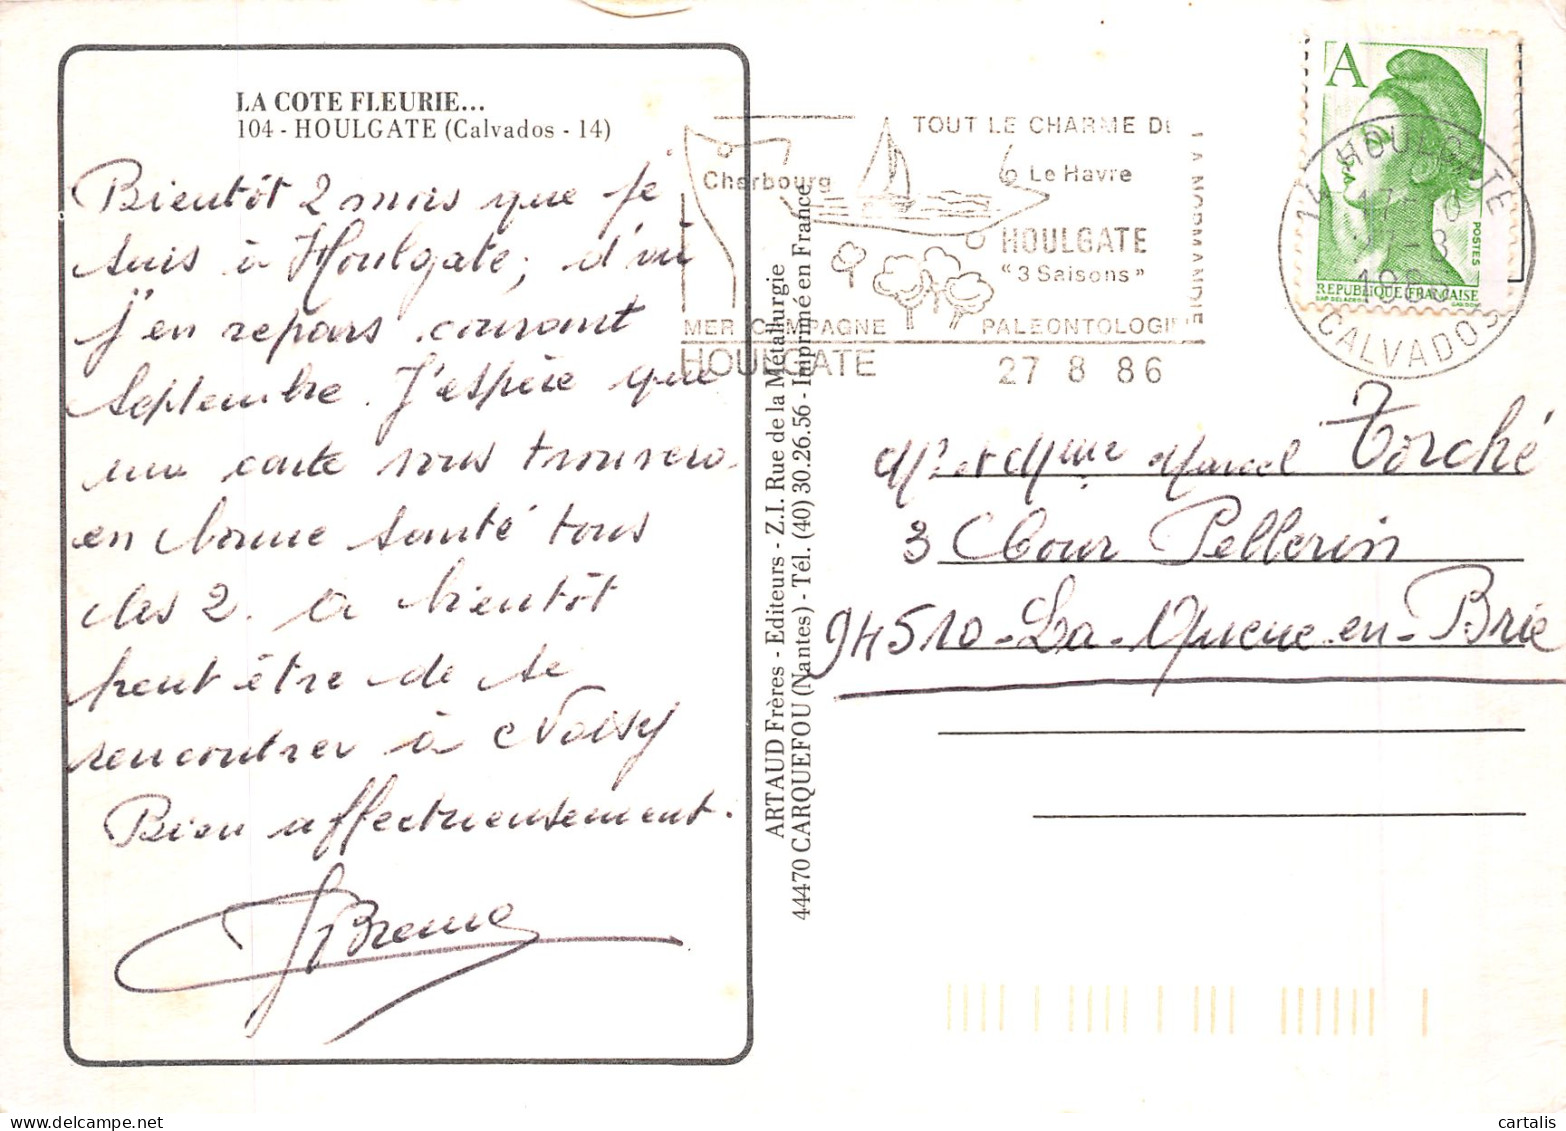 LA COTE FLEURIE...
104 - HOULGATE (Calvados - 14)
Bientôt 2 mois que je
suis à Houlgate, d'où
j'en repars courant
Septembre. J'espère que
ma carte vous trouvera
en bonne santé tous
les 2. A bientôt
peut être de se
rencontrer à Noisy
Bien affectueusement.
ARTAUD Frères - Editeurs - Z.I. Rue de la Métallurgie
44470 CARQUEFOU (Nantes) - Tél. (40) 30.26.56 - Imprimé en France
TOUT LE CHARME DE
LA NORMANDIE
Cherbourg
Le Havre
HOULGATE
"3 Saisons"
MER CAMPAGNE PALEONTOLOGIE
HOULGATE 27 8 86
A
POSTES
REPUBLIQUE FRANÇAISE
14 HOULGATE
27-8
CALVADOS
Mr et Mme Marcel Torché
3 Cour Pellerin
94510 - La - Queue - en - Brie
cartalis